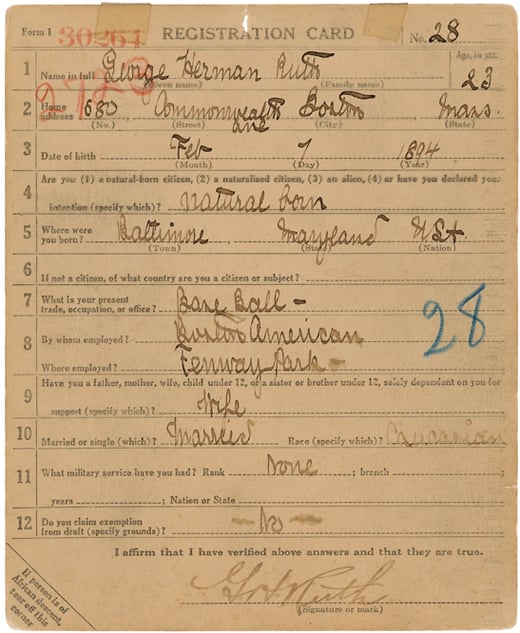 Form 1 30264 REGISTRATION CARD No. 28
1 Name in full George Herman Ruth Age, in yrs. 23
(Given name) (Family name)
2 Home address 680 Commonwealth Ave Boston Mass.
(No.) (Street) (City) (State)
3 Date of birth Feb 7 1894
(Month) (Day) (Year)
4 Are you (1) a natural-born citizen, (2) a naturalized citizen, (3) an alien, (4) or have you declared your
intention (specify which)? natural born
5 Where were you born? Baltimore Maryland USA
(Town) (State) (Nation)
6 If not a citizen, of what country are you a citizen or subject?
7 What is your present trade, occupation, or office? Base Ball -
8 By whom employed? Boston American
Where employed? Fenway Park -
28
9 Have you a father, mother, wife, child under 12, or a sister or brother under 12, solely dependent on you for
support (specify which)? Wife
10 Married or single (which)? Married Race (specify which)? Caucasian
11 What military service have you had? Rank None ; branch ;
years ; Nation or State
12 Do you claim exemption from draft (specify grounds)? - No -
I affirm that I have verified above answers and that they are true.
G H Ruth
(Signature or mark)
If person is of
African descent,
tear off this
corner